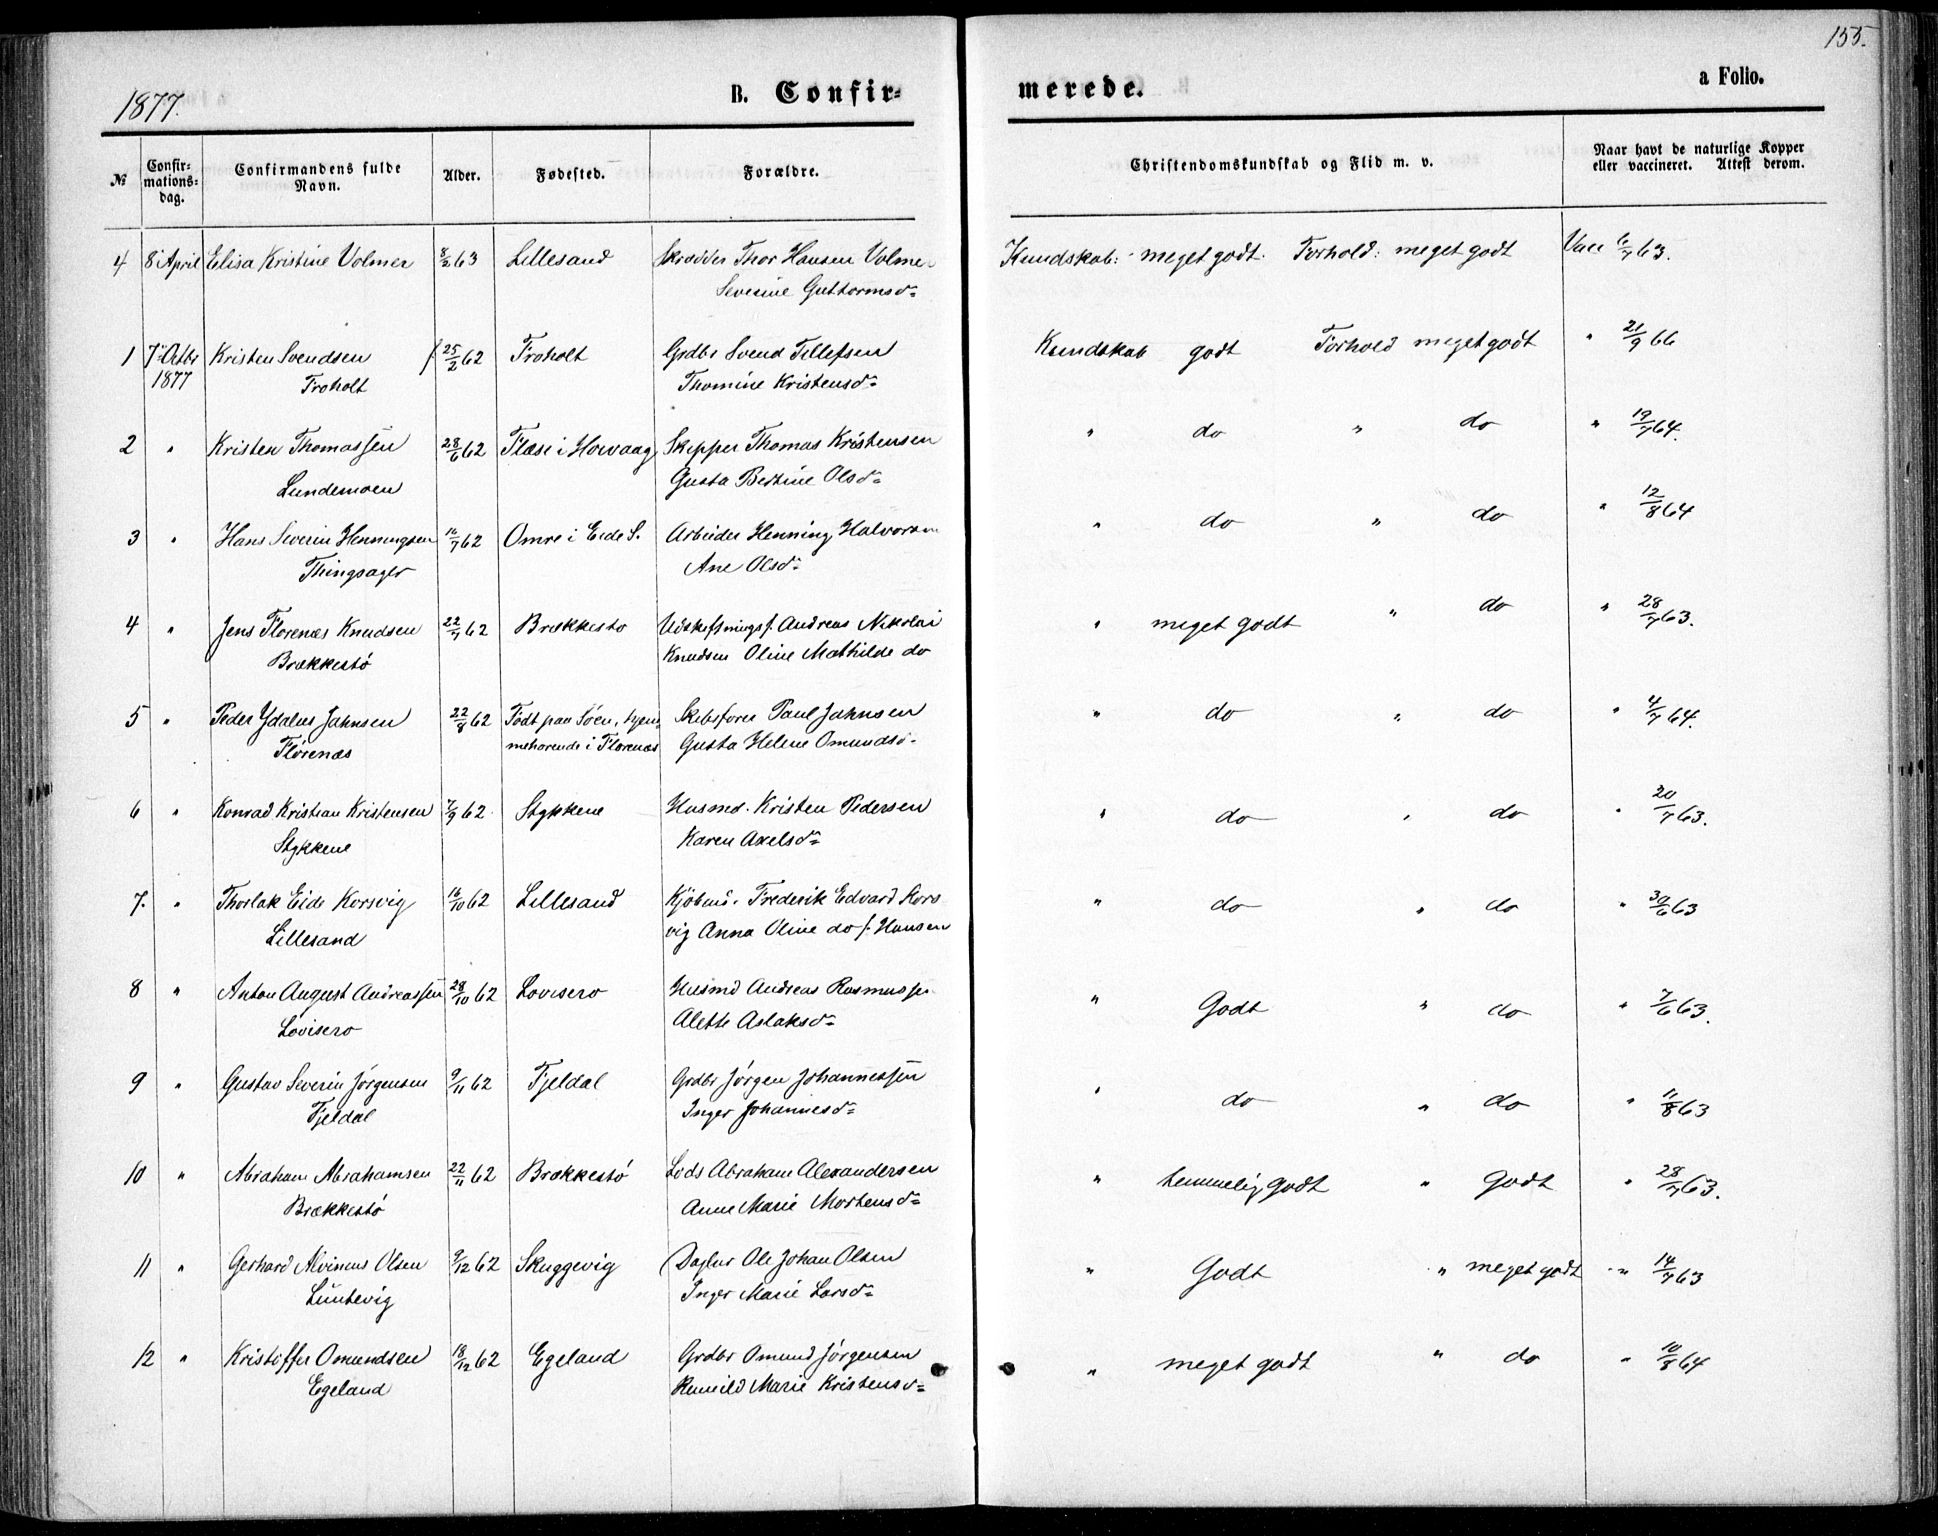 155.
1877.
B. Confir-
merede.
a Folio.
№
Confir-
mations-
dag.
Confirmandens fulde
Navn.
Alder.
Fødested.
Forældre.
Christendomskundskab og Flid m. v.
Naar havt de naturlige Kopper
eller vaccineret. Attest derom.
4 8 April Elisa Kristine Volmer 8/2 63 Lillesand Skrædder Thor Hansen Volmer Kundskab: meget godt. Forhold: meget godt Vacc 6/7 63.
Severine Guttormsd
1 7 Octbr Kristen Svendsen 25/2 62 Froholt Grdbr Svend Tellefsen Kundskab godt Forhold meget godt " 21/9 66
1877 Froholt Thomine Kristensd
2 " Kristen Thomassen 28/6 62 Flæse i Høvaag Skipper Thomas Kristensen " do " do " 19/7 64.
Lundemoen Gusta Bertine Olsd
3 " Hans Severin Henningsen 16/7 62 Omre i Eide S. Arbeider Henning Halvorsen " do " do " 12/8 64
Thingsager Ane Olsd
4 " Jens Florenæs Knudsen 22/7 62 Brækkestø Udskiftningsf. Andreas Nikolai " meget godt " do " 28/7 63.
Brækkestö Knudsen Oline Mathilde do
5 " Peder Ydalus Jahnsen 22/8 62 Födt paa Söen, hjem- Skibsfører Paul Jahnsen " do " do " 4/7 64.
Flörenæs mehørende i Florenæs Gusta Helene Omundsd
6 " Konrad Kristian Kristensen 7/9 62 Stykkene Husmd. Kristen Pedersen " do " do " 20/7 63.
Stykkene Karen Axelsd
7. " Thorlak Eide Korsvig 16/10 62 Lillesand Kjøbmd. Frederik Edvard Kors " do " do " 30/6 63
Lillesand vig Anna Oline do f. Hansen
8 " Anton August Andreassen 28/10 62 Lovisero Husmd Andreas Rasmussen " Godt " do " 7/6 63.
Lovisero Alette Aslaksd
9 " Gustav Severin Jørgensen 9/11 62 Fjeldal Grdbr Jørgen Johannessen " do " do " 11/8 63
Fjeldal Inger Johannesd
10 " Abraham Abrahamsen 22/11 62 Brækkestö Lods Abraham Alexandersen " temmelig godt " Godt " 28/7 63.
Brækkestö Anne Marie Mortensd
11 " Gerhard Alvinius Olsen 9/12 62 Skuggevig Daglnr Ole Johan Olsen " Godt " meget godt " 14/7 63
Luntevig Inger Marie Larsd
12 " Kristoffer Omundsen 18/12 62 Egeland Grdbr Omund Jørgensen " meget godt " do " 10/8 64
Egeland Marie Kristensd